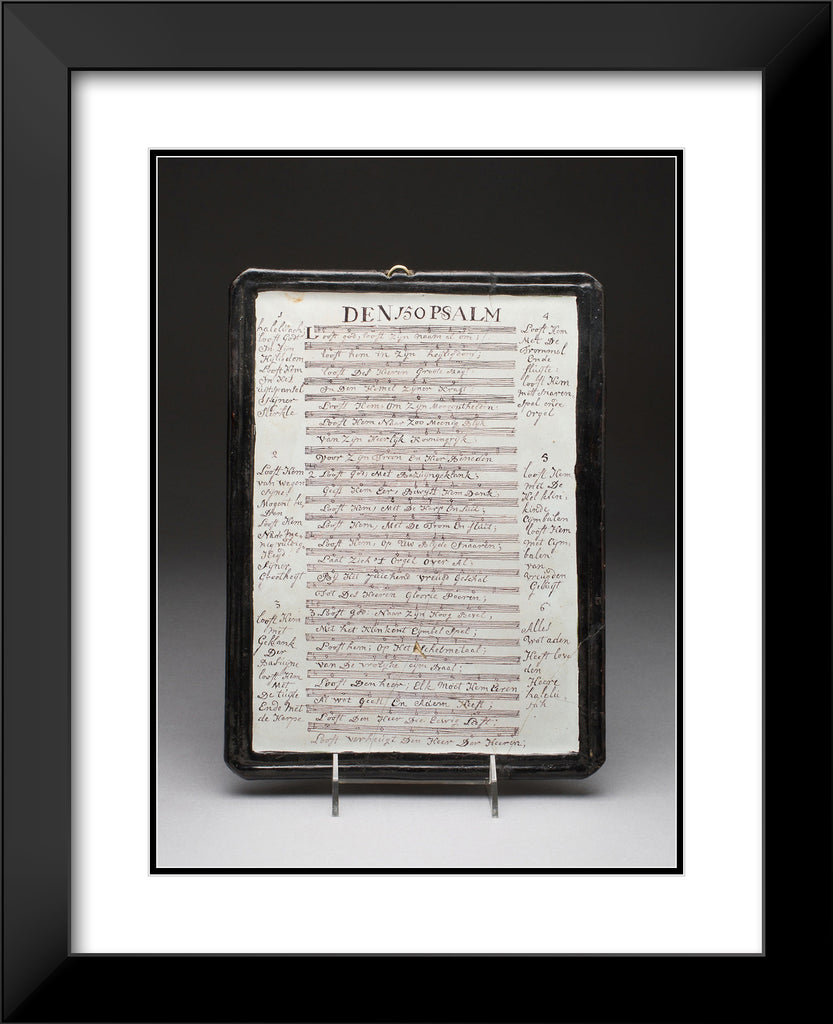 DEN 150 PSALM
1
haleluiah
looft Godt
In Zijn
Hijligdom
Looft Hem
In Het
uijtspansel
Zijner
Sterkte
2
Looft Hem
van wegen
Sijne
Mogent he
Den
Looft Hem
Na de me
nigvuldig
Heijt
Sijner
Grootheijt
3
looft Hem
Met
Geklank
Der
Basuijne
looft Hem
Met
De Luijte
Ende Met
de Harpe
Looft god, looft Zijn naam al om;
looft hem in Zijn heijligdom;
looft Des Heeren Groote Magt
In Den Hemel Zijner Kragt
Looft Hem, Om Zijn Moogentheeden
Looft Hem Naar Zoo Meenig Blijk
Van Zijn Heerlijk Koningrijk
Voor Zijn Troon En Hier Beneden
2 Looft God, Met Bazuijngeklank;
Geeft Hem Eer, Bewijst Hem Dank;
Looft Hem, Met De Harp En Luit;
Looft Hem, Met De Trom En fluit;
Looft Hem, Op Uw Blijde Snaaren;
Laat Zich 't Orgel Over Al;
Bij Het Juichend vreugde Geschal
Tot Des Heeren Glorie Paeren;
3, Looft god, Naar Zijn Hoog Bevel,
Met het Klinkent Cymbel Spel;
Looft hem, Op Het Schelmetaal;
van De vrolijke Cijm Baal;
Looft Den heer; Elk Moet Hem Eeren
Al wat Geest En Adem Heeft;
Looft Den Heer Die Eewig Leeft;
Looft verheugt Den Heer Der Heeren;
4
Looft Hem
Met De
Trommel
Ende
fluijte;
looft Hem
mett snaren
spel ende
orgel
5
looft Hem
met De
Hel klin;
kinde
Cymbalen
looft Hem
met Cijm;
balen
van
vreugden
Geluijt
6
Alles
wat aden
Heeft love
den
Heere
halelu
jah